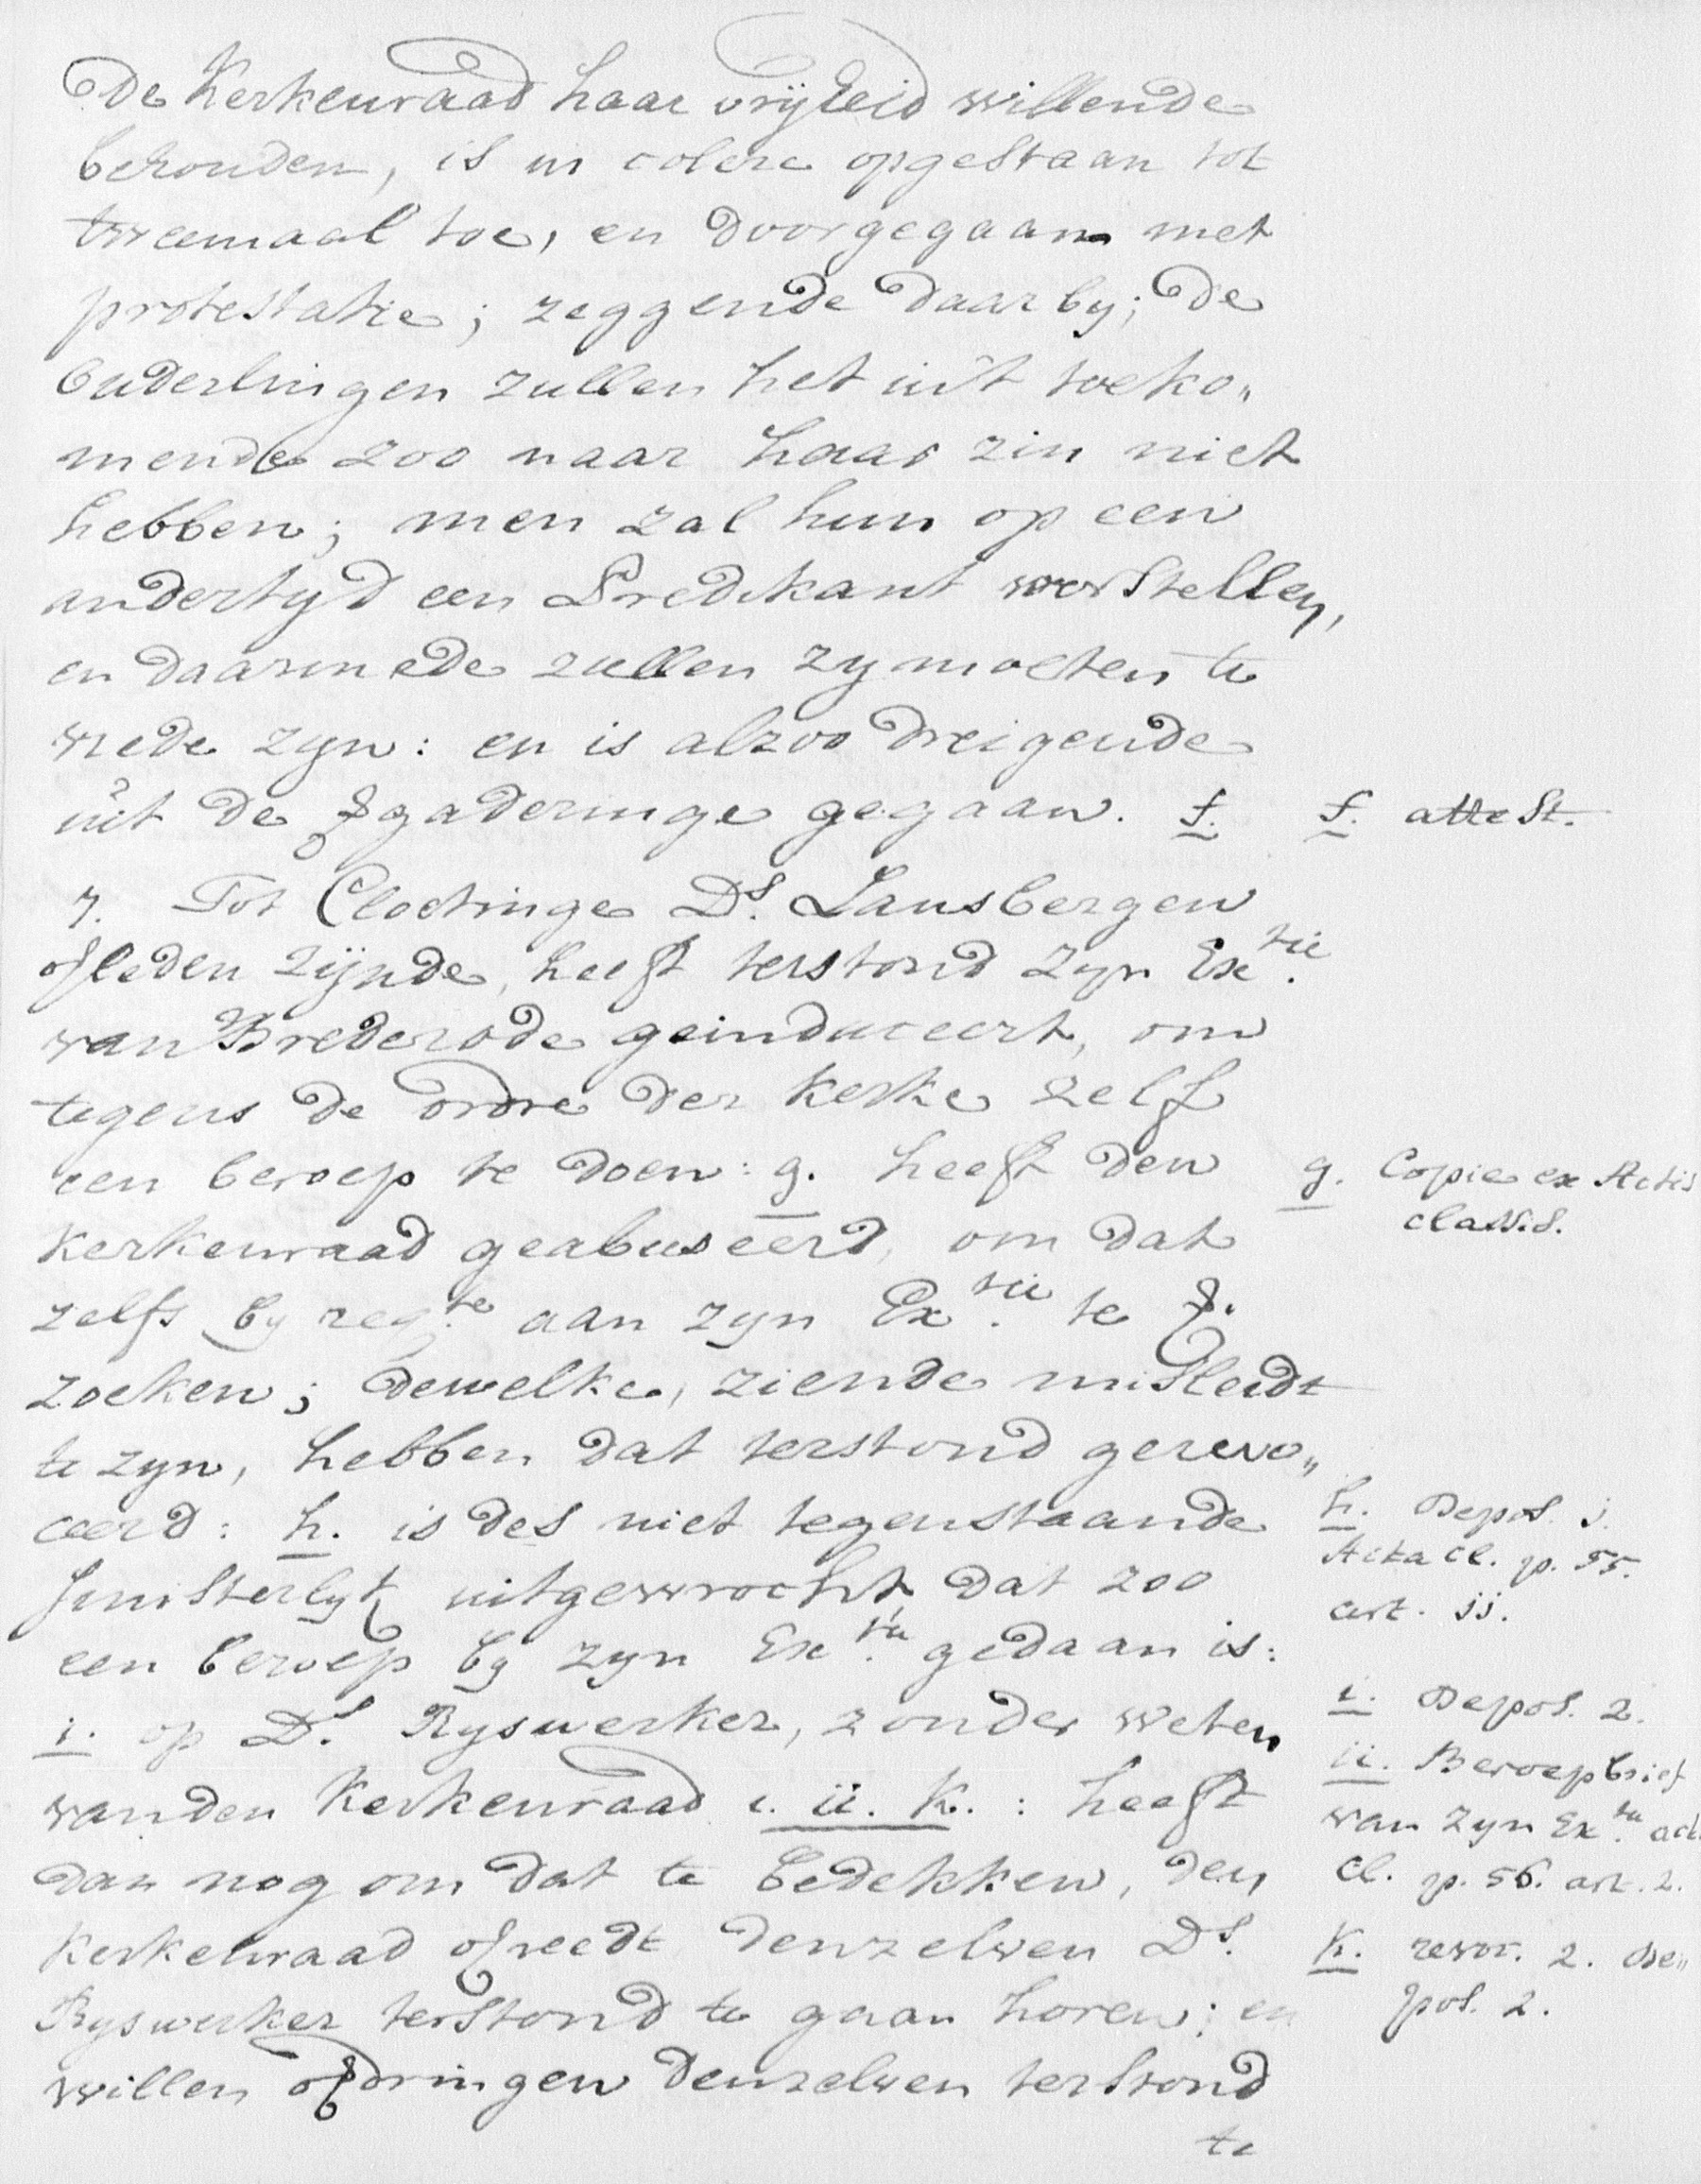 De Kerkenraad haar vrijheid willende
behouden, is in colere opgestaan tot
tweemaal toe, en doorgegaan met
protestatie; zeggende daar by; de
Ouderlingen zullen het in't toeko„
mende zoo naar haar zin niet
hebben; men zal hun op een
andertyd een Predikant voorstellen,
en daarmede zullen zy moeten te
vrede zyn: en is alzoo dreigende
uit de vgaderinge gegaan. f.
f. attest.
7. Tot Cloetinge Ds. Lansbergen
ofleden zijnde, heeft terstond zyn Extie.
van Brederode geinduceert, om
tegens de ordre der Kerke zelf
een beroep te doen: g. heeft den
g. Copie ex Actis
classis.
Kerkenraad geabuseerd, om dat
zelfs by reqte. aan zyn Extie. te v.
zoeken; dewelke, ziende misleidt
te zyn, hebben dat terstond gerevo„
ceerd: h. is des niet tegenstaande
h. Depos. j.
Acta cl. p. 55.
art. jj.
sinisterlyk uitgewrocht dat zoo
een beroep by zyn Extie. gedaan is:
i. op Ds. Ryswerker, zonder weten
i. Depos. 2.
van den Kerkenraad i. ii. K.: heeft
ii. Beroepbrief
van zyn Extie. act.
cl. p. 56. art. 2.
dan nog om dat te bedekken, den
Kerkenraad ofreedt denzelven Ds.
K. revoc. 2. De„
pos. 2.
Ryswerker terstond te gaan horen; en
willen ofdringen denzelven terstond
te